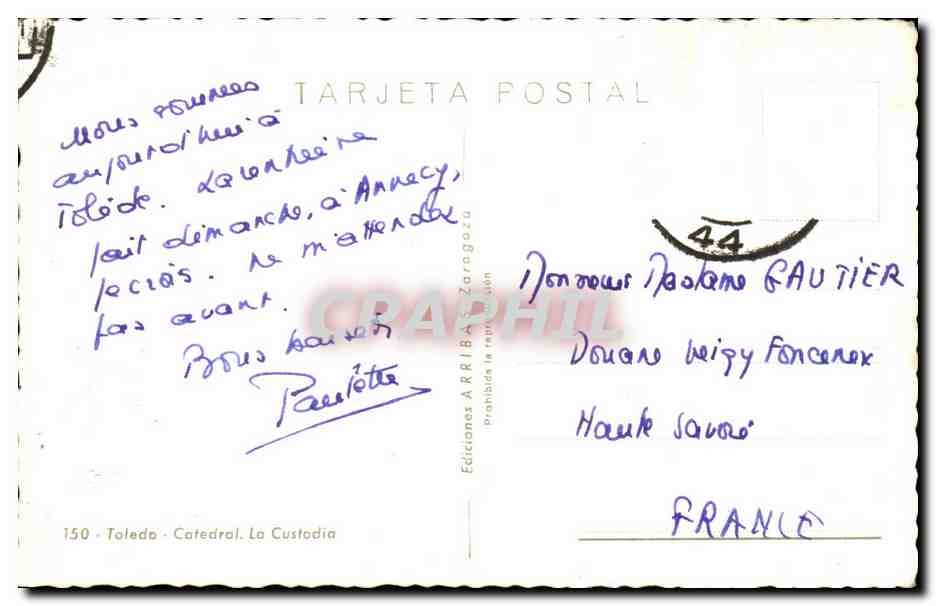 TARJETA POSTAL
Nous sommes
aujourd'hui à
Tolède.
fait dimanche, à Annecy,
je crois. Ne m'attendez
pas avant.
Bons baisers
Paulette
44
Monsieur Madame GAUTIER
Douane Veigy Foncenex
Haute Savoie
FRANCE
Ediciones ARRIBAS - Zaragoza
Prohibida la reproducción
CPAPHIL
150 - Toledo - Catedral. La Custodia